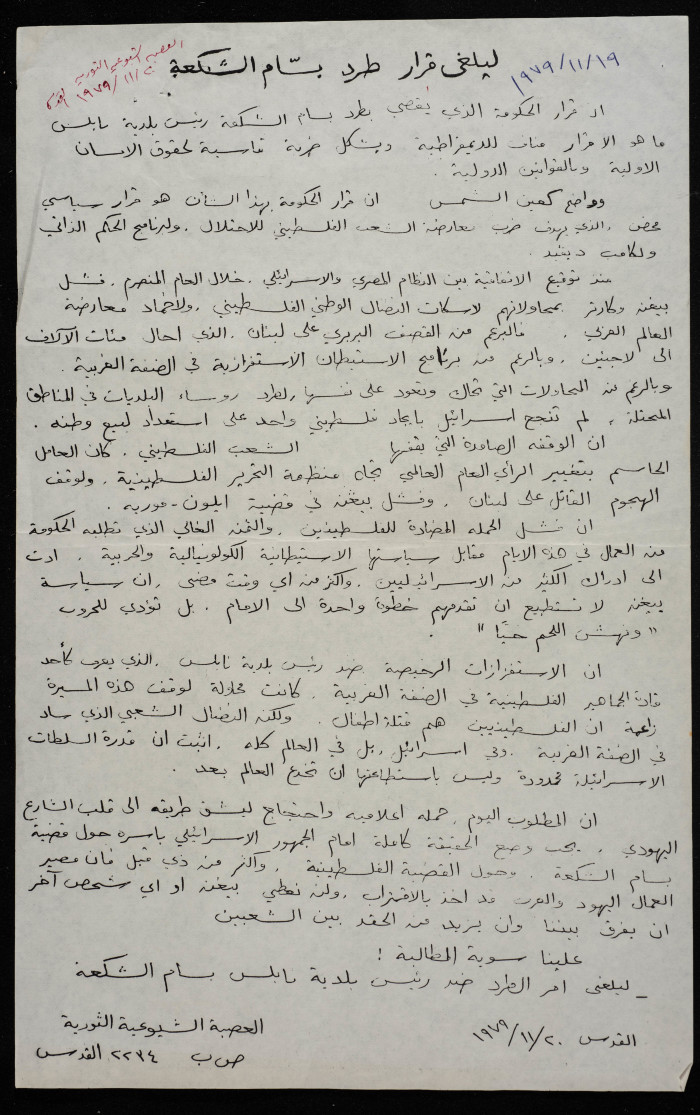 العصبة الشيوعية الثورية
١٩٧٩/١١/٢٠ القدس
ليلغى قرار طرد بسّام الشكعة
١٩٧٩/١١/١٩
ان قرار الحكومة الذي يقضي بطرد بسام الشكعة رئيس بلدية نابلس
ما هو الا قرار مناف للديمقراطية ويشكل ضربة قاسية لحقوق الانسان
الاولية وبالقوانين الدولية .
وواضح كعين الشمس ان قرار الحكومة بهذا الشأن هو قرار سياسي
محض ، الذي يهدف ضرب معارضة الشعب الفلسطيني للاحتلال ، ولبرنامج الحكم الذاتي
ولكامب ديفيد .
منذ توقيع الاتفاقية بين النظام المصري والاسرائيلي ، خلال العام المنصرم ، فشل
بيغن وكارتر بمحاولاتهم لاسكات النضال الوطني الفلسطيني ، ولاخماد معارضة
العالم العربي . فبالرغم من القصف البربري على لبنان ، الذي احال مئات الآلاف
الى لاجئين ، وبالرغم من برنامج الاستيطان الاستفزازية في الضفة الغربية .
وبالرغم من المحاولات التي تحاك وتعود على نفسها ، لطرد روساء البلديات في المناطق
المحتلة ، لم تنجح اسرائيل بايجاد فلسطيني واحد على استعداد لبيع وطنه .
ان الوقفه الصامدة التي يقفها الشعب الفلسطيني ، كان العامل
الحاسم بتغيير الرأي العام العالمي تجاه منظمة التحرير الفلسطينية ، ولوقف
الهجوم القاتل على لبنان ، وفشل بيغن في قضية ايلون - موريه .
ان فشل الحمله المضادة للفلسطينين ، والثمن الغالي الذي تطلبه الحكومة
من العمال في هذه الايام مقابل سياستها الاستيطانية الكولونيالية والحربية ، ادت
الى ادراك الكثير من الاسرائيليين ، واكثر من اي وقت مضى ، ان سياسة
بيغن لا تستطيع ان تقدمهم خطوة واحدة الى الامام ، بل تؤدي للحروب
" ونهش اللحم حيًّا " .
ان الاستفزازات الرخيصة ضد رئيس بلدية نابلس ، الذي يعرف كأحد
قادة الجماهير الفلسطينية في الضفة الغربية ، كانت محاولة لوقف هذه المسيرة
زاعمة ان الفلسطينيين هم قتلة اطفال . ولكن النضال الشعبي الذي ساد
في الضفة الغربية وفي اسرائيل ، بل في العالم كله ، اثبت ان قدرة السلطات
الاسرائيلية محدودة وليس باستطاعتها ان تخدع العالم بعد .
ان المطلوب اليوم ، حمله اعلاميه واحتجاج ليشق طريقه الى قلب الشارع
اليهودي . يجب وضع الحقيقة كاملة امام الجمهور الاسرائيلي باسره حول قضية
بسام الشكعة ، وحول القضية الفلسطينية ، واكثر من ذي قبل فان مصير
العمال اليهود والعرب قد اخذ بالاقتراب ، ولن نعطي بيغن او اي شخص آخر
ان يفرق بيننا وان يزيد من الحقد بين الشعبين
علينا سوية المطالبة !
_ ليلغى امر الطرد ضد رئيس بلدية نابلس بسام الشكعة
القدس ١٩٧٩/١١/٢٠
العصبة الشيوعية الثورية
ص ب ٢٢٣٤ القدس